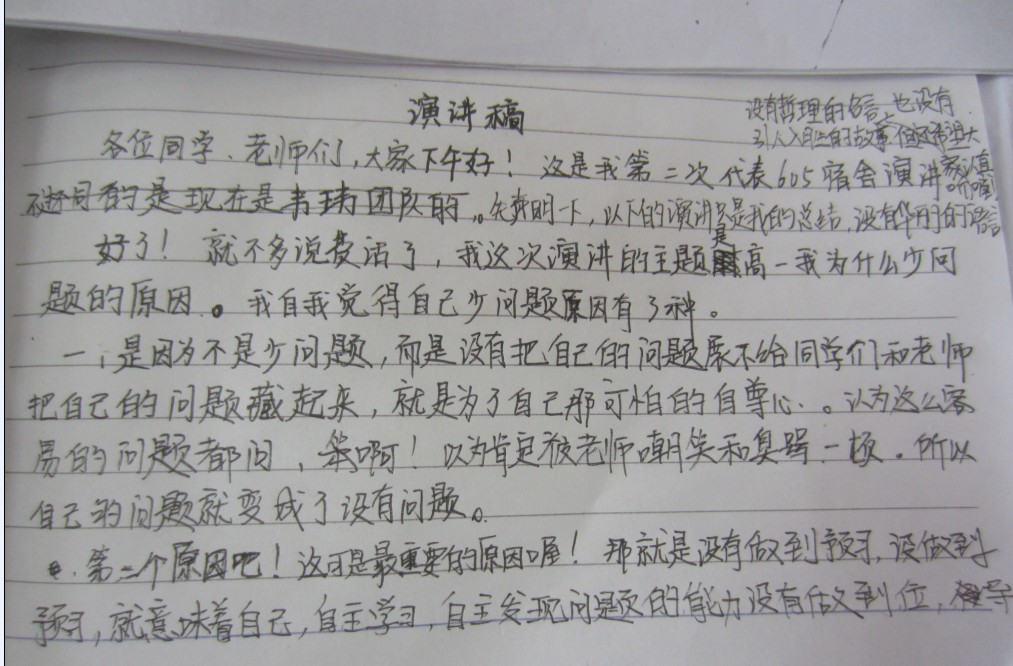 演讲稿
没有哲理的名言,也没有
引人入胜的故事,但还希望大
家认真
听喔!
各位同学、老师们,大家下午好!这是我第二次代表605宿舍演讲
不过不同的是现在是韦玮团队的。先声明一下,以下的演讲只是我的总结,没有华丽的语言
好了!就不多说废话了,我这次演讲的主题是高一我为什么少问
题的原因。我自我觉得自己少问题原因有3种。
一,是因为不是少问题,而是没有把自己的问题展示给同学们和老师
把自己的问题藏起来,就是为了自己那可怕的自尊心.。认为这么容
易的问题都问,笨啊!以为肯定被老师嘲笑和臭骂一顿.所以
自己的问题就变成了没有问题。
第二个原因吧!这可是最重要的原因喔!那就是没有做到预习,没做到
预习,就意味着自己,自主学习,自主发现问题的能力没有做到位,导